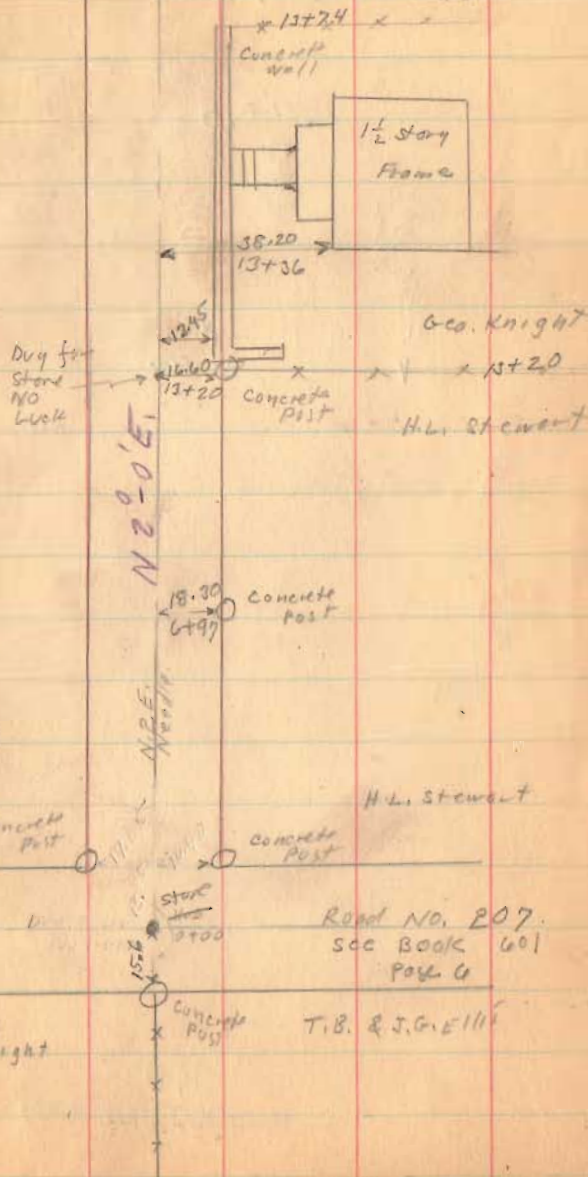 13+74
Concrete
wall
1½ story
Frame
38.20
13+36
Geo. Knight
12.45
Dug for
Stone
NO
Luck
16.60
13+20
Concrete
Post
13+20
H.L. Stewart
N 2°-0' E.
18.30
6+97
Concrete
Post
N.2.E.
Needle
H.L. Stewart
Concrete
Post
Stone
0+00
15.6
Road No. 207.
See Book 601
Page 6
Concrete
Post
T.B. & J.G. Ellis